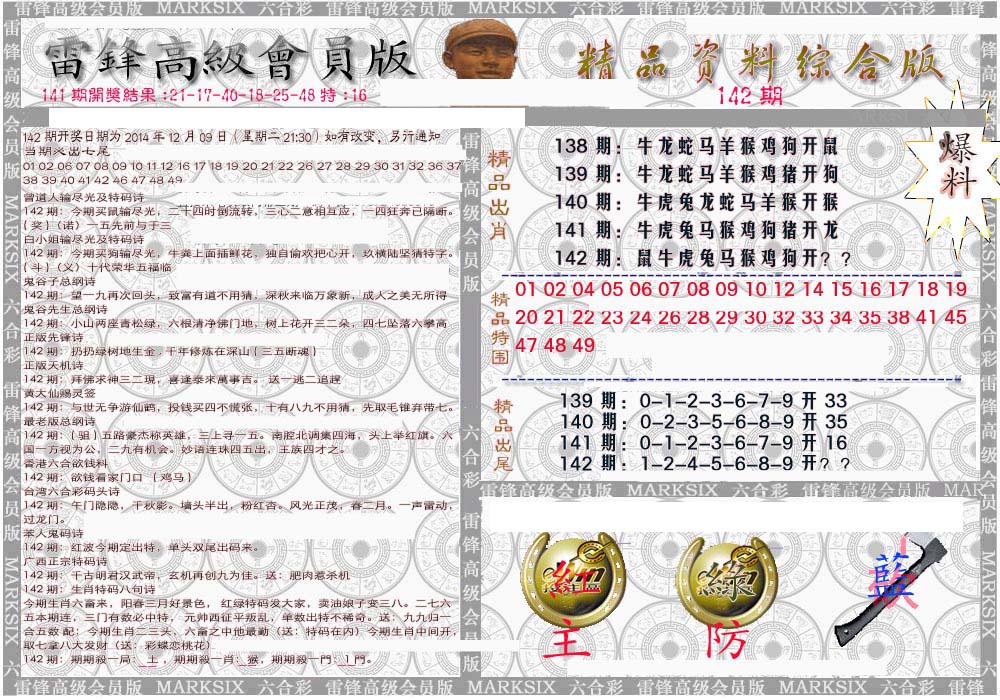 雷锋高级会员版 MARKSIX 六合彩 雷锋高级会员版 MARKSIX 六合彩 雷锋高级会员版 MARKSIX 六合彩 雷锋
雷鋒高級會員版
精品资料综合版
141期開獎結果:21-17-40-18-25-48特:16
142期
142期开奖日期为2014年12月09日(星期二21:30)如有改变，另行通知
当期灵出七尾
01 02 06 07 08 09 10 11 12 16 17 18 19 20 21 22 26 27 28 29 30 31 32 36 37
38 39 40 41 42 46 47 48 49
曾道人输尽光及特码诗
142期：今期买鼠输尽光，二十四时倒流转，三心二意相互应，一四狂奔已隔断。
{奖}〈诺〉一五先前与于三
白小姐输尽光及特码诗
142期：今期买狗输尽光，牛粪上面插鲜花，独自偷欢把心开，玖横陆竖猜特字。
{斗}〈义〉十代荣华五福临
鬼谷子总纲诗
142期：望一九再次回头，致富有道不用猜，深秋来临万象新，成人之美无所得
鬼谷先生总纲诗
142期：小山两座青松绿，六根清净佛门地，树上花开三二朵，四七坠落六攀高
正版先锋诗
142期：扔扔绿树地生金，千年修炼在深山{三五断魂}
正版天机诗
142期：拜佛求神三二现，喜逢泰来万事吉。送一逃二追趕
黄大仙赐灵签
142期：与世无争游仙鹤，投钱买四不慌张，十有八九不用猜，先取毛锥弃带七。
最老版总纲诗
142期：{驵}五路豪杰称英雄，三上寻一五。南腔北调集四海，头上举红旗。六
国一万视为公，二九有机会。妙语连珠四五出，王族四才之。
香港六合欲钱料
142期：欲钱看家门口 {鸡马}
台湾六合彩码头诗
142期：午门隐隐，千秋影。墙头半出，粉红杏。风光正茂，春二月。一声雷动，
过龙门。
笨人鬼码诗
142期：红波今期定出特，单头双尾出码来。
广西正宗特码诗
142期：千古明君汉武帝，玄机再创九为佳。送：肥肉惹杀机
142期：生肖特码八句诗
今期生肖六畜来，阳春三月好景色， 红绿特码发大家，卖油娘子变三八。二七六
五本期连，三门有数必中特， 元帅西征平叛乱，单数出特不稀奇。送：九九归一
合五数 配：今期生肖二三头，六畜之中他最勤（送：特码在内）今期生肖中间开，
取七拿八大发财（送：彩蝶恋桃花）
142期：期期殺一局：土，期期殺一肖：猴，期期殺一門：1門。
精品出肖
138期：牛龙蛇马羊猴鸡狗开鼠
139期：牛龙蛇马羊猴鸡猪开狗
140期：牛虎兔龙蛇马羊猴开猴
141期：牛虎兔马猴鸡狗猪开龙
142期：鼠牛虎兔马猴鸡狗开？？
爆料
精品特围
01 02 04 05 06 07 08 09 10 12 14 15 16 17 18 19
20 21 22 23 24 26 28 29 30 32 33 34 35 38 41 45
47 48 49
精品出尾
139期：0-1-2-3-6-7-9开33
140期：0-2-3-5-6-8-9开35
141期：0-1-2-3-6-7-9开16
142期：1-2-4-5-6-8-9开？？
雷锋高级会员版 MARKSIX 六合彩 雷锋高级会员版 MAR
紅
主
綠
防
藍
雷锋高级会员版 MARKSIX 六合彩 雷锋高级会员版 MARKSIX 六合彩 雷锋高级会员版 MARKSIX 六合彩 雷锋